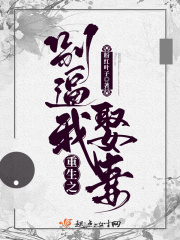 重生之
别逼我
娶妻
粉红叶子 著
起点中文网